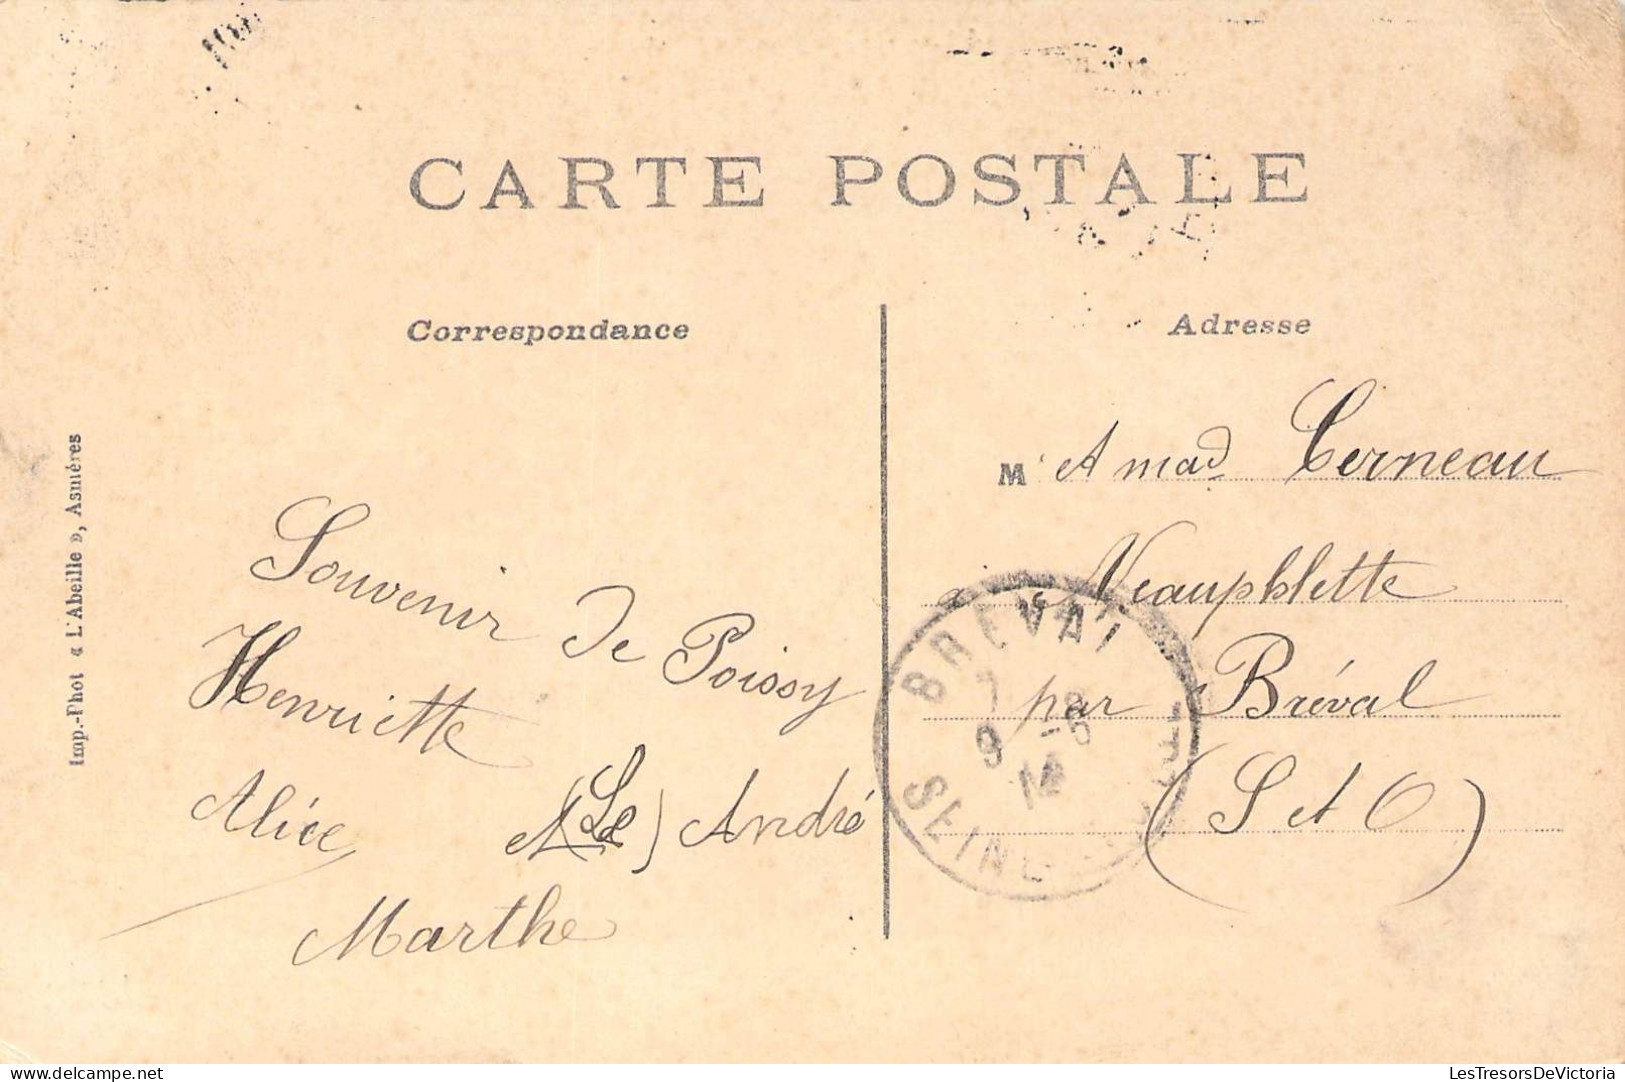 CARTE POSTALE
Correspondance
Adresse
Imp.-Phot « L'Abeille », Asnières
Souvenir de Poissy
Henriette
Alice et (Le) André
Marthe
M et Mad Cerneau
à Neauphlette
par Bréval
(S et O)
BREVAL
9 -6
14
SEINE
LesTresorsDeVictoria